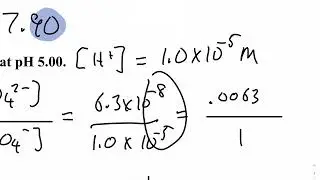 7.40
at pH 5.00. [H⁺] = 1.0×10⁻⁵ M
O₄²⁻] / O₄⁻] = 6.3×10⁻⁸ / 1.0×10⁻⁵ = .0063 / 1